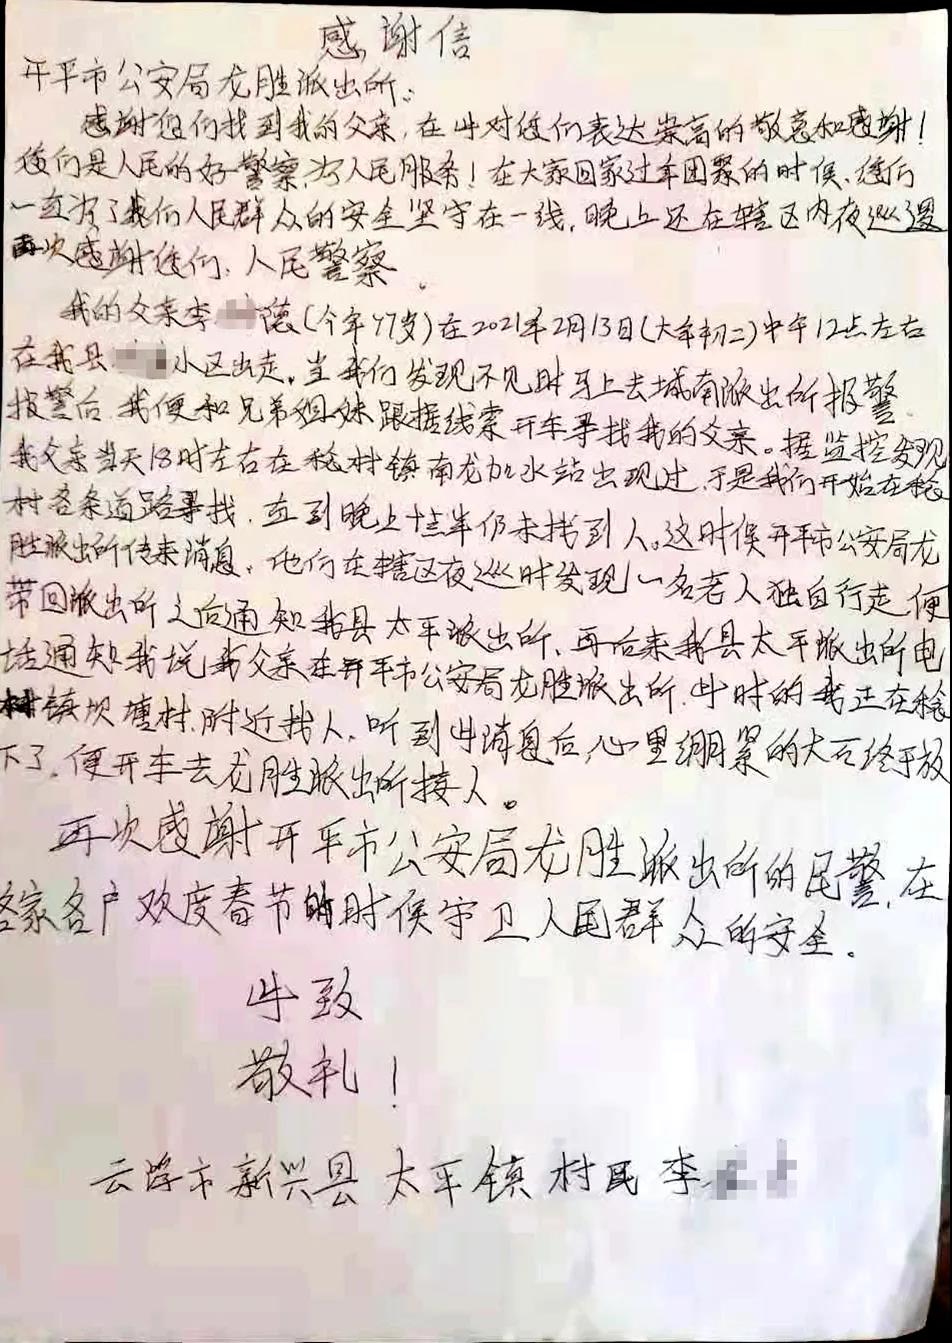 感谢信
开平市公安局龙胜派出所:
感谢您们找到我的父亲,在此对您们表达崇高的敬意和感谢!
您们是人民的好警察,为人民服务!在大家回家过年团聚的时候,您们
一直为了我们人民群众的安全坚守在一线,晚上还在辖区内夜巡逻
再次感谢您们、人民警察。
我的父亲李 德(今年77岁)在2021年2月13日(大年初二)中午12点左右
在我县 小区出走。当我们发现不见时马上去城南派出所报警
报警后,我便和兄弟姐妹跟据线索开车寻找我的父亲。据监控发现
我父亲当天18时左右在稔村镇南龙加水站出现过,于是我们开始在稔
村各条道路寻找,直到晚上十二点半仍未找到人。这时候开平市公安局龙
胜派出所传来消息,他们在辖区夜巡时发现一名老人独自行走,便
带回派出所之后通知我县太平派出所,再后来我县太平派出所电
话通知我说我父亲在开平市公安局龙胜派出所,此时的我正在稔
村镇坝塘村附近找人,听到此消息后,心里绷紧的大石终于放
下了,便开车去龙胜派出所接人。
再次感谢开平市公安局龙胜派出所的民警,在
各家各户欢度春节的时候守卫人民群众的安全。
此致
敬礼!
云浮市新兴县太平镇村民李